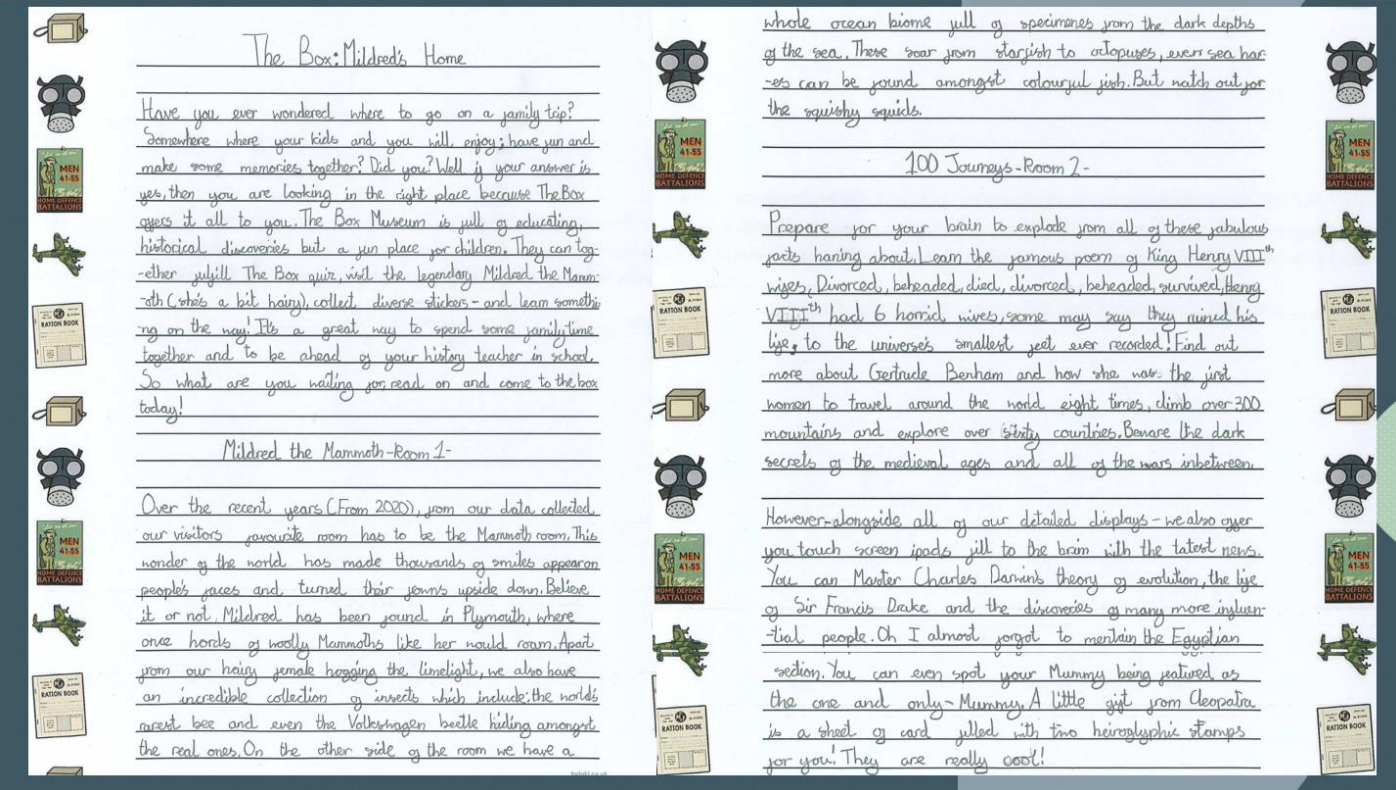 The Box: Mildred's Home
Have you ever wondered where to go on a family trip?
Somewhere where your kids and you will enjoy; have fun and
make some memories together? Did you? Well if your answer is
yes, then you are looking in the right place because The Box
offers it all to you. The Box Museum is full of educating,
historical discoveries but a fun place for children. They can tog-
-ether fulfill The Box quiz, visit the legendary Mildred the Mamm-
-oth (she's a bit hairy), collect diverse stickers - and learn somethi
ng on the way! It's a great way to spend some family time
together and to be ahead of your history teacher in school.
So what are you waiting for, read on and come to the box
today!
Mildred the Mammoth-Room 1-
Over the recent years (From 2020), from our data collected
our visitors favourite room has to be the Mammoth room. This
wonder of the world has made thousands of smiles appear on
people's faces and turned their frowns upside down. Believe
it or not, Mildred has been found in Plymouth, where
once hords of woolly Mammoths like her would roam. Apart
from our hairy female hogging the limelight, we also have
an incredible collection of insects which include: the world's
rarest bee and even the Volkswagen beetle hiding amongst
the real ones. On the other side of the room we have a
whole ocean biome full of specimenes from the dark depths
of the sea. These soar from starfish to octopuses, even sea hor-
-es can be found amongst colourful fish. But watch out for
the squishy squids.
100 Journeys-Room 2-
Prepare for your brain to explode from all of these fabulous
facts haning about. Learn the famous poem of King Henry VIIIth
wifes, Divorced, beheaded, died, divorced, beheaded, survived, Henry
VIIIth had 6 horrid wives, some may say they ruined his
life, to the universe's smallest feet ever recorded! Find out
more about Gertrude Benham and how she was the first
women to travel around the world eight times, climb over 300
mountains and explore over sixty countries. Beware the dark
secrets of the medieval ages and all of the wars inbetween.
However-alongside all of our detailed displays - we also offer
you touch screen ipads fill to the brim with the latest news.
You can Master Charles Darwin's theory of evolution, the life
of Sir Francis Drake and the discoveries of many more influen-
-tial people. Oh I almost forgot to mention the Egyptian
section. You can even spot your Mummy being featured as
the one and only - Mummy. A little gift from Cleopatra
is a sheet of card filled with two heiroglyphic stamps
for you! They are really cool!
MEN
41-55
HOME DEFENCE
BATTALIONS
RATION BOOK
MEN
41-55
HOME DEFENCE
BATTALIONS
RATION BOOK
MEN
41-55
HOME DEFENCE
BATTALIONS
RATION BOOK
MEN
41-55
HOME DEFENCE
BATTALIONS
RATION BOOK
MEN
41-55
HOME DEFENCE
BATTALIONS
RATION BOOK
MEN
41-55
HOME DEFENCE
BATTALIONS
RATION BOOK